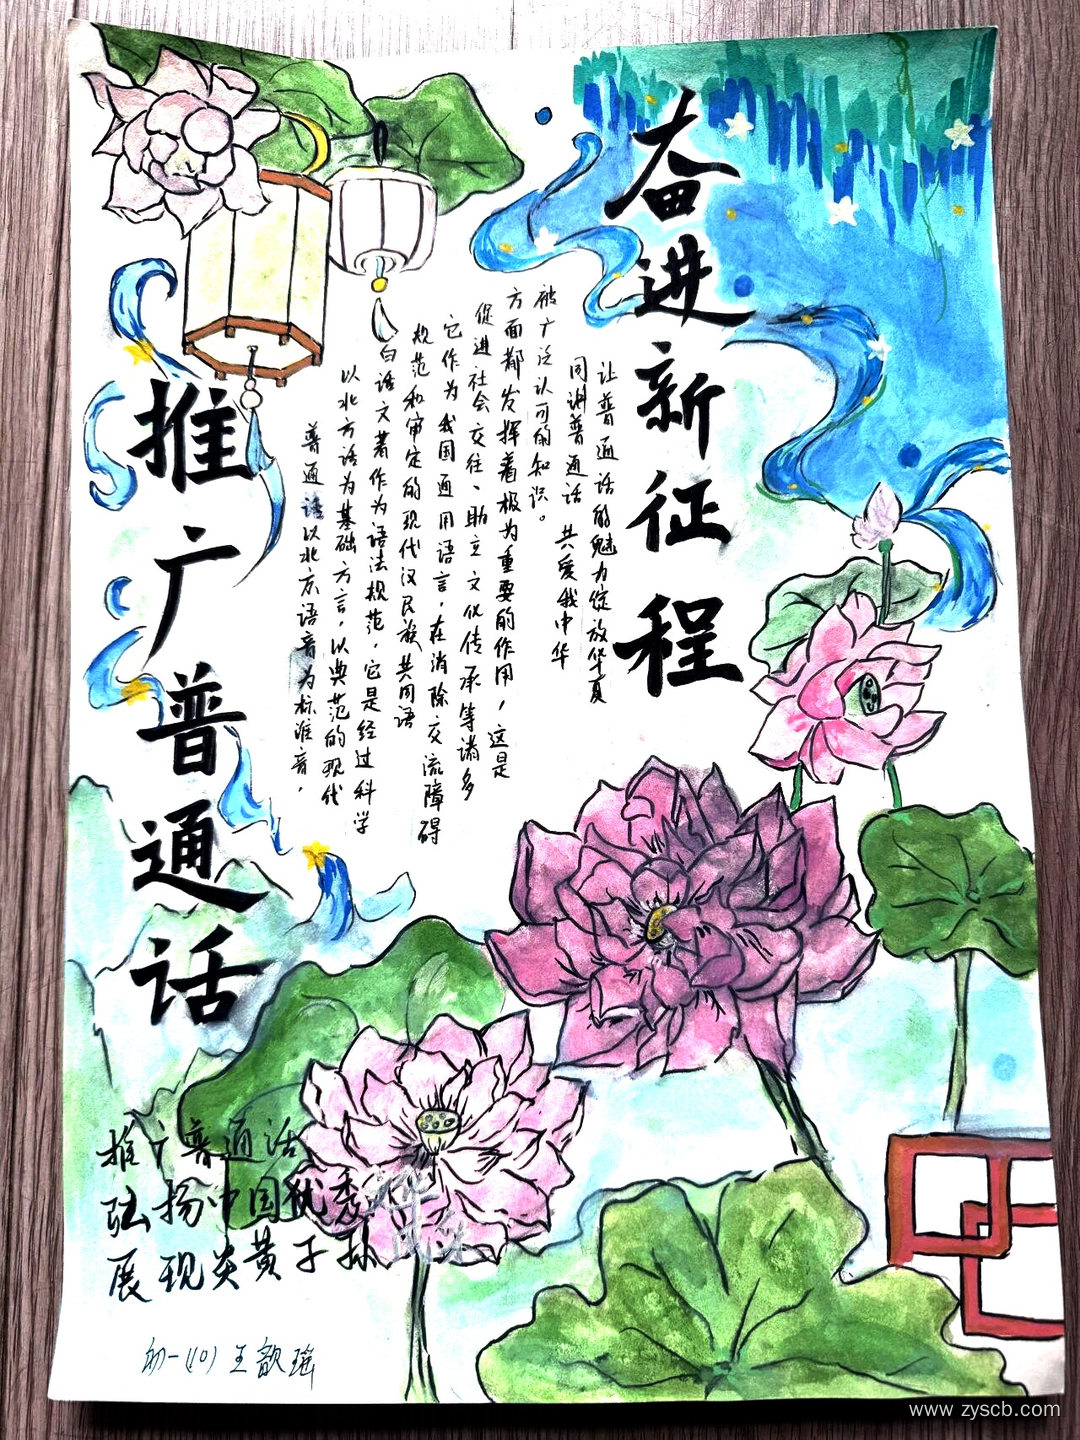 推广普通话
奋进新征程
普通话以北京语音为标准音，
以北方话为基础方言，以典范的现代
白话文著作为语法规范，它是经过科学
规范和审定的现代汉民族共同语
它作为我国通用语言，在消除交流障碍
促进社会交往、助立文化传承等诸多
方面都发挥着极为重要的作用，这是
被广泛认可的知识。
同谢普通话 共爱我中华
让普通话的魅力绽放华夏
推广普通话
弘扬中国犹秀
展现炎黄子孙
初一(10) 王歆瑶
www.zyscb.com